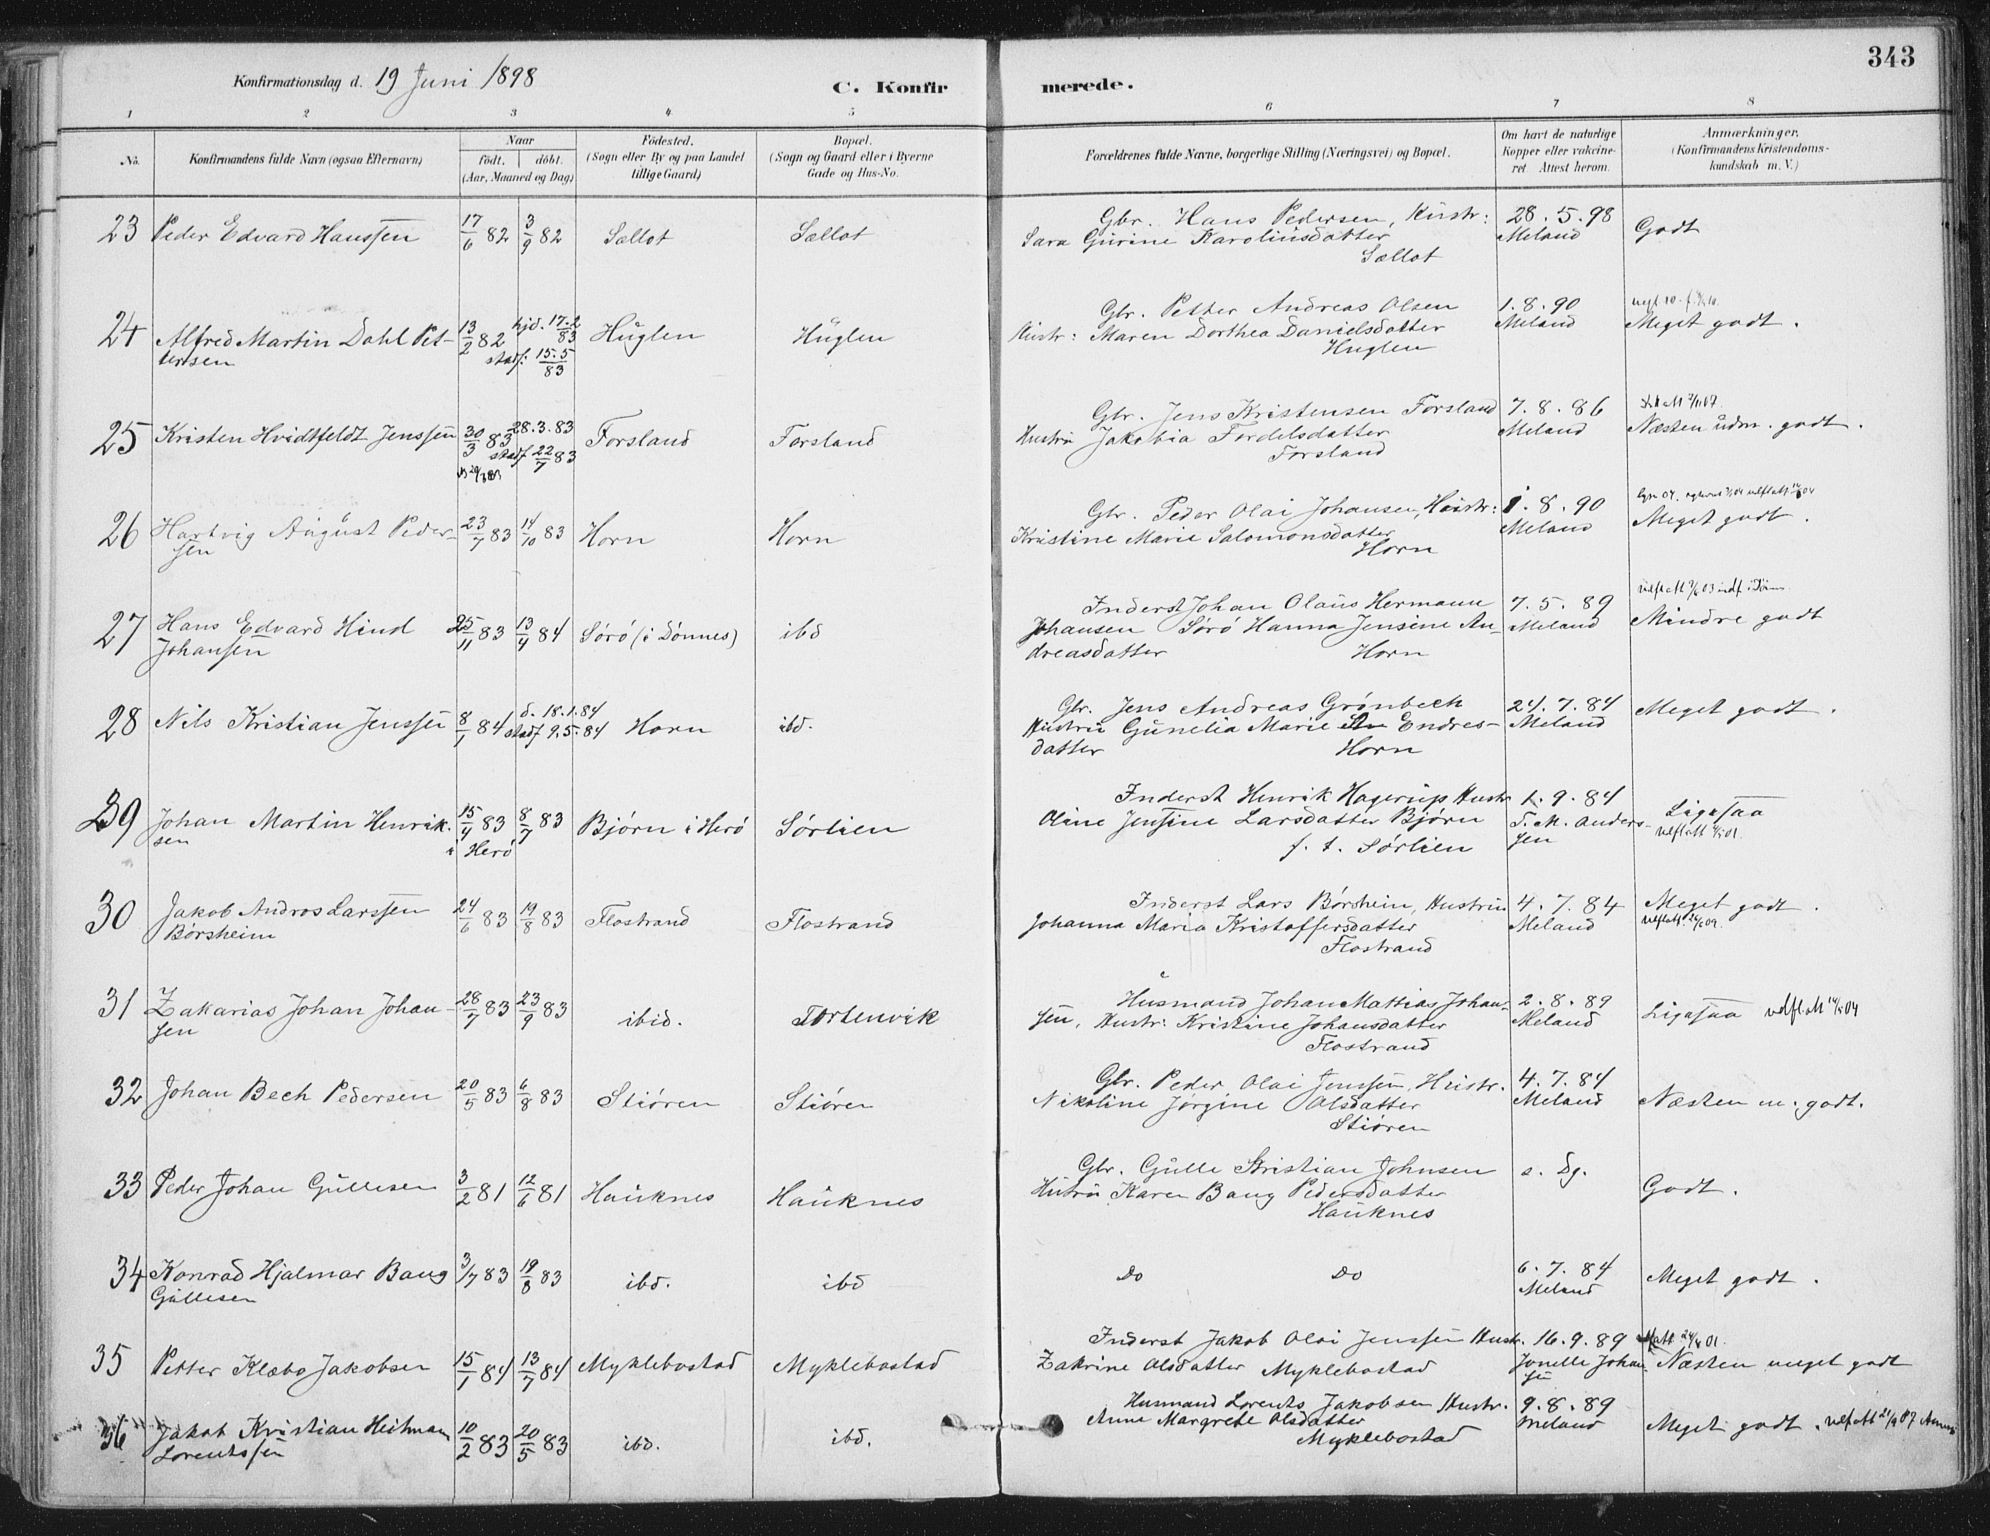 343
Konfirmationsdag d. 19 Juni 1898
C. Konfirmerede.
1 2 3 4 5 6 7 8
No. Konfirmandens fulde Navn (ogsaa Efternavn) Naar födt. döbt. (Aar, Maaned og Dag) Födested. (Sogn eller By og paa Landet tillige Gaard) Bopæl. (Sogn og Gaard eller i Byerne Gade og Hus-No. Forældrenes fulde Navne, borgerlige Stilling (Næringsvei) og Bopæl. Om havt de naturlige Kopper eller vakcineret Attest herom. Anmærkninger. (Konfirmandens Kristendomskundskab m. V.)
23 Peder Edvard Hanssen 17/6 82 3/9 82 Sællot Sællot Gbr. Hans Pedersen, Hustr: 28.5.98
Sara Gurine Karoliusdatter Meland Godt
Sællot
24 Alfred Martin Dahl Pet- 13/2 82 hjd. 17.2/83 Huglen Huglen Gbr. Petter Andreas Olsen 1.8.90
tersen stadf: 15.5/83 Hustr: Maren Dorthea Danielsdatter Meland Meget godt.
Huglen
25 Kristen Hvidtfeldt Jenssen 30/3 83 28.3.83 Forsland Forsland Gbr. Jens Kristensen Forsland 7.8.86
stadf 22/7 83 Hustru Jakobia Fordelsdatter Meland Næsten udm. godt.
Forsland
26 Hartvig August Peder- 23/7 83 14/10 83 Horn Horn Gbr. Peder Olai Johansen, Hustr: 1.8.90
sen Kristine Marie Salomonsdatter Meland Meget godt.
Horn
27 Hans Edvard Hind 25/11 83 13/4 84 Sørø (i Dønnes) ibd Inderst Johan Olaus Hermann 7.5.89
Johansen Johansen Sørø Hanna Jensine An- Meland Mindre godt
dreasdatter Horn
28 Nils Kristian Jenssen 8/1 84 d. 18.1.84 Horn ibd. Gbr. Jens Andreas Grønbech 24.7.84 Meget godt.
stadf 9.5.84 Hustru Gunelia Marie Endres- Meland
datter Horn
29 Johan Martin Henrik- 15/4 83 8/7 83 Bjørn i Herø Sørlien Inderst Henrik Hagerup Hustr 1.9.84
sen i Herø Oline Jensine Larsdatter Bjørn T. M. Anders- Ligesaa
f. t. Sørlien sen
30 Jakob Andros Larssen 24/6 83 19/8 83 Flostrand Flostrand Inderst Lars Børsheim, Hustru 4.7.84 Meget godt.
Børsheim Johanna Maria Kristoffersdatter Meland
Flostrand
31 Zakarias Johan Johan- 28/7 83 23/9 83 ibid. Tortenvik Husmand Johan Mattias Johan- 2.8.89
sen sen, Hustr: Kristine Johansdatter Meland Ligesaa
Flostrand
32 Johan Bech Pedersen 20/5 83 6/8 83 Stiøren Stiøren Gbr. Peder Olai Jenssen, Hustr. 4.7.84
Nikoline Jørgine Olsdatter Meland Næsten m. godt.
Stiøren
33 Peder Johan Gullesen 3/2 81 12/6 81 Hauknes Hauknes Gbr. Gulle Kristian Johnsen s. Dg.
Hustru Karen Baug Pedersdatter Godt.
Hauknes
34 Konrad Hjalmar Baug 3/7 83 19/8 83 ibd. ibd Do Do 6.7.84
Gullesen Meland Meget godt.
35 Petter Klæbo Jakobsen 15/1 84 13/7 84 Myklebostad Myklebostad Inderst Jakob Olai Jenssen Hustr. 16.9.89
Zakrine Olsdatter Myklebostad Jonelle Johan- Næsten meget godt
sen
36 Jakob Kristian Heitman 10/2 83 20/5 83 ibd. ibd. Husmand Lorents Jakobsen Hustr. 9.8.89
Lorentssen Anne Margrete Olsdatter Meland Meget godt.
Myklebostad